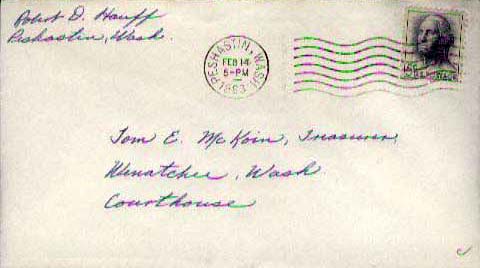 Robert D. Hauff
Peshastin, Wash.
PESHASTIN, WASH.
FEB 14
5-PM
1963
5¢
Tom E. McKoin, Treasurer
Wenatchee, Wash
Courthouse